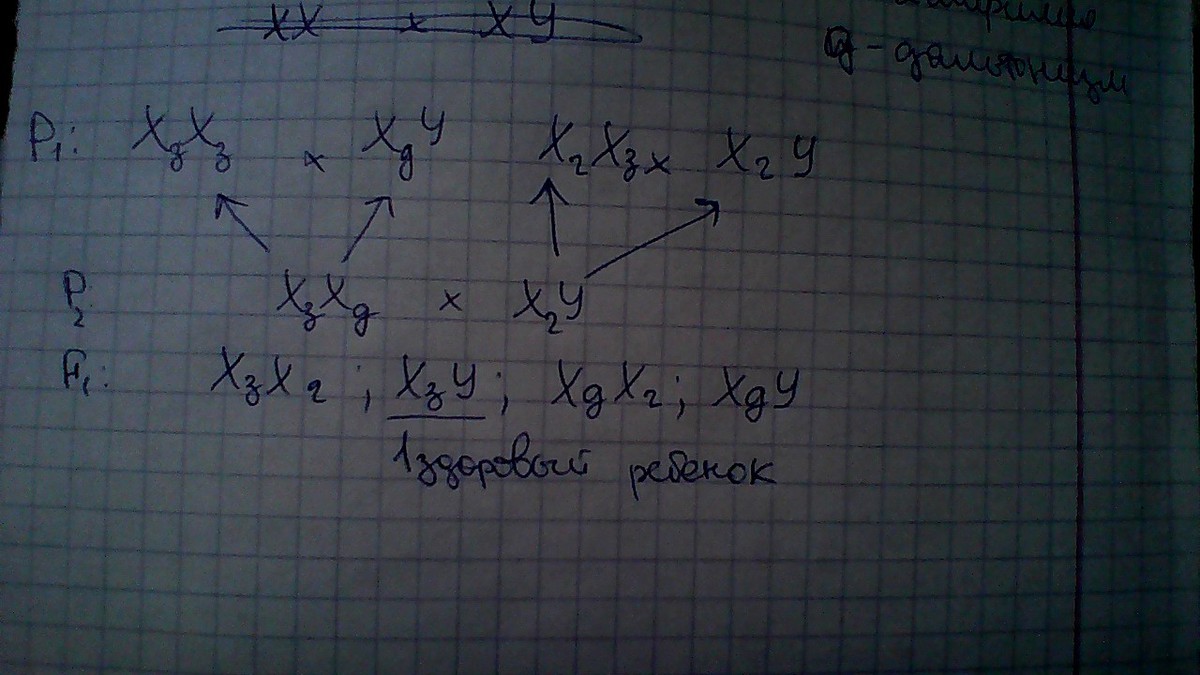 XX x XY
д - дальтонизм
P₁: XзXз x XдY XгXз x XгY
P₂ XзXд x XгY
F₁: XзXг ; XзY ; XдXг ; XдY
1 здоровый ребенок